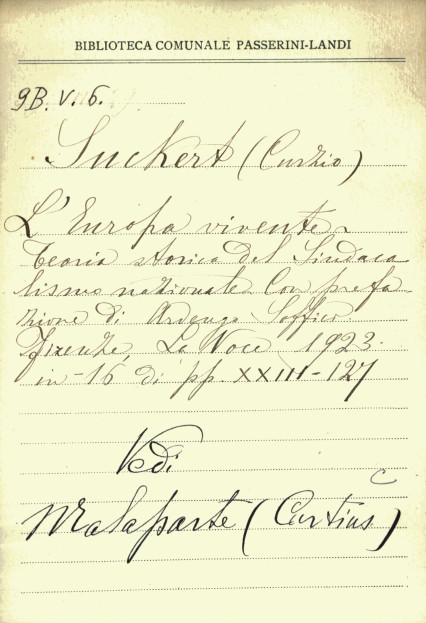 BIBLIOTECA COMUNALE PASSERINI-LANDI
9B. V. 6.
Suckert (Curzio)
L'Europa vivente.
Teoria storica del Sindaca
lismo nazionale. Con prefa
zione di Ardengo Soffici.
Firenze, La Voce, 1923.
in-16 di pp. XXIII-127
Vedi
C
Malaparte (Curtius)